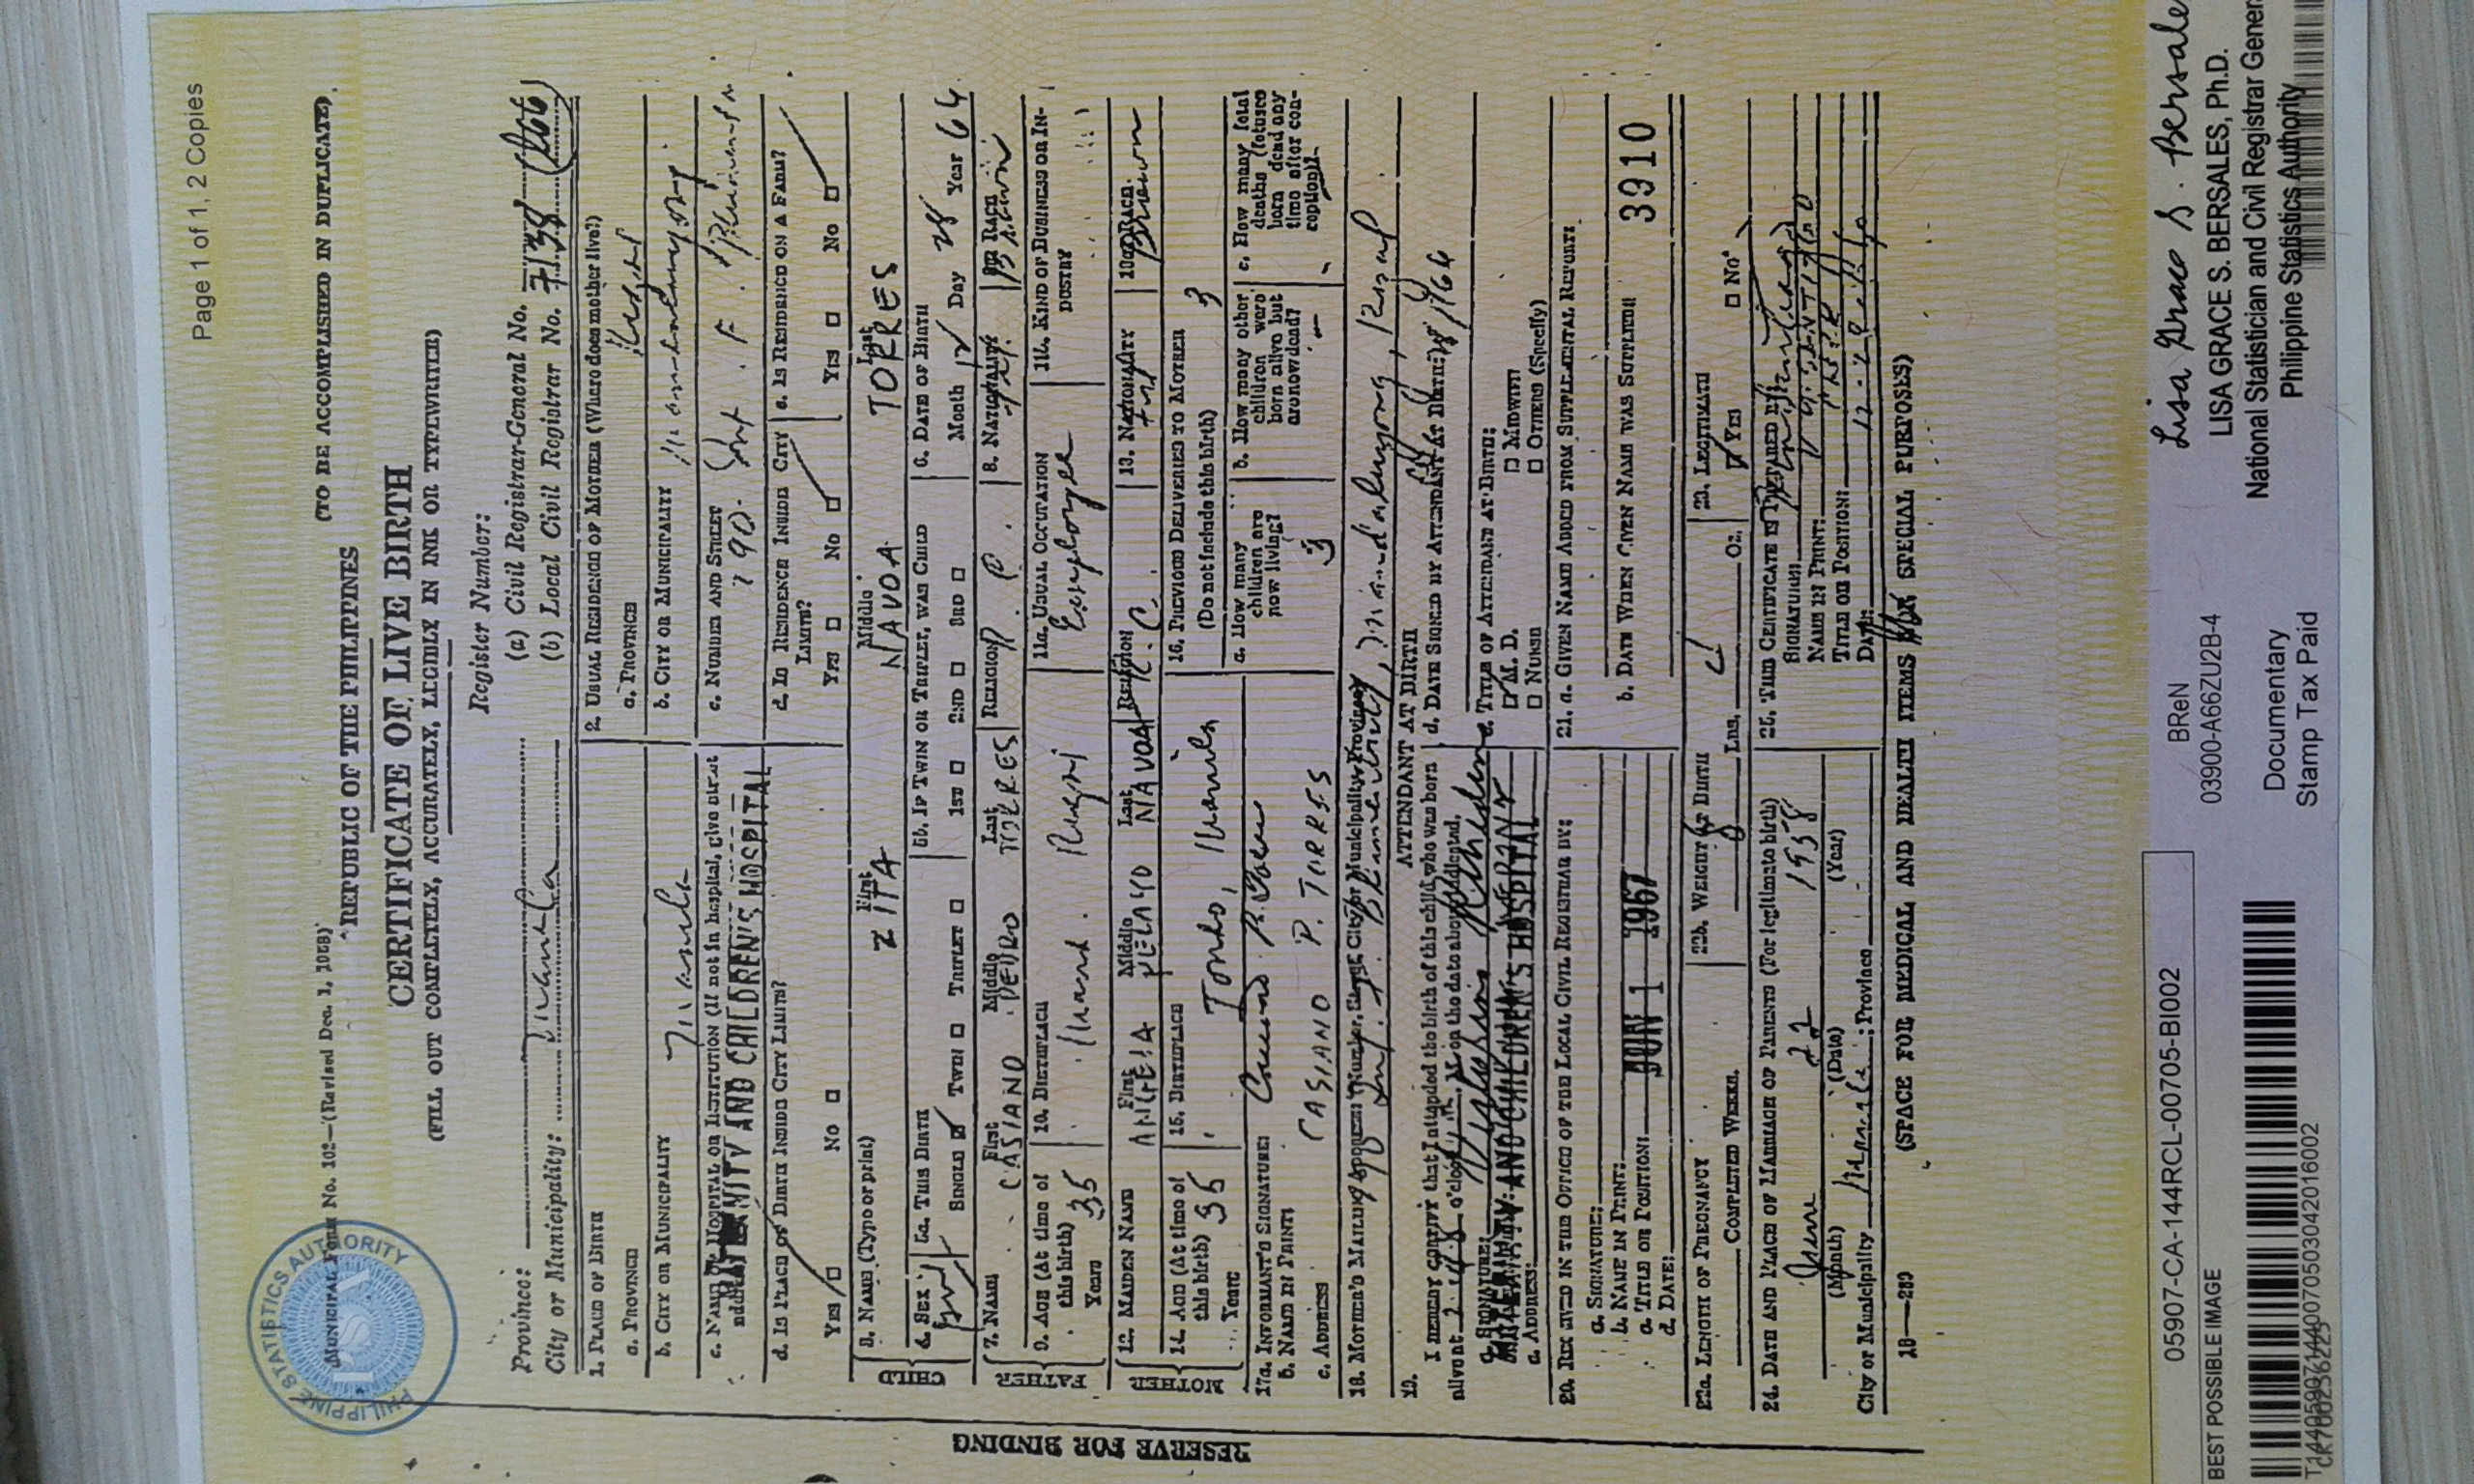 Page 1 of 1, 2 Copies
PHILIPPINE STATISTICS AUTHORITY
PSA
MUNICIPAL FORM No. 102—(Revised Dec. 1, 1958)
(TO BE ACCOMPLISHED IN DUPLICATE)
REPUBLIC OF THE PHILIPPINES
CERTIFICATE OF LIVE BIRTH
(FILL OUT COMPLETELY, ACCURATELY, LEGIBLY IN INK OR TYPEWRITER)
Register Number:
Province: (a) Civil Registrar-General No.
City or Municipality: Manila (b) Local Civil Registrar No. 7138 (l66)
1. PLACE OF BIRTH
a. PROVINCE
b. CITY OR MUNICIPALITY Manila
c. NAME OF HOSPITAL OR INSTITUTION (If not in hospital, give street address)
MATERNITY AND CHILDREN'S HOSPITAL
d. IS PLACE OF BIRTH INSIDE CITY LIMITS?
YES NO
2. USUAL RESIDENCE OF MOTHER (Where does mother live?)
a. PROVINCE Rizal
b. CITY OR MUNICIPALITY Mandaluyong
c. NUMBER AND STREET 790 Int. F.
d. IS RESIDENCE INSIDE CITY LIMITS?
YES NO
e. IS RESIDENCE ON A FARM?
YES NO
RESERVE FOR BINDING
CHILD
3. NAME (Type or print) First Middle Last
ZITA NAVOA TORRES
4. SEX
5a. THIS BIRTH
SINGLE TWIN TRIPLET
5b. IF TWIN OR TRIPLET, WAS CHILD
1ST 2ND 3RD
6. DATE OF BIRTH
Month 12 Day 28 Year 66
FATHER
7. NAME First Middle Last
CASIANO PEDRO TORRES
RELIGION R. C.
8. NATIONALITY Fil.
8a RACE Brown
9. AGE (At time of this birth)
Years 35
10. BIRTHPLACE
11a. USUAL OCCUPATION
Employee
11b. KIND OF BUSINESS OR INDUSTRY
MOTHER
12. MAIDEN NAME First Middle Last
ANGELA PELAYO NAVOA
RELIGION R. C.
13. NATIONALITY Fil
13a RACE Brown
14. AGE (At time of this birth)
Years 35
15. BIRTHPLACE
Tondo, Manila
16. PREVIOUS DELIVERIES TO MOTHER
(Do not include this birth) 3
a. How many children are now living?
3
b. How many other children were born alive but are now dead?
c. How many fetal deaths (fetuses born dead any time after conception)?
17a. INFORMANT'S SIGNATURE:
b. NAME IN PRINT:
CASIANO P. TORRES
c. ADDRESS
18. MOTHER'S MAILING ADDRESS: (Number, Street, City or Municipality, Province)
790 Int. F. , Mandaluyong, Rizal
19. ATTENDANT AT BIRTH
I HEREBY CERTIFY that I attended the birth of this child, who was born
alive at o'clock M. on the date above indicated.
a. SIGNATURE:
MATERNITY AND CHILDREN'S HOSPITAL
c. ADDRESS:
d. DATE SIGNED BY ATTENDANT AT BIRTH:
e. TITLE OF ATTENDANT AT BIRTH:
M. D. MIDWIFE
NURSE OTHERS (Specify)
20. RECEIVED IN THE OFFICE OF THE LOCAL CIVIL REGISTRAR BY:
a. SIGNATURE:
b. NAME IN PRINT:
c. TITLE OR POSITION:
JUN 1 1967
d. DATE:
21. a. GIVEN NAME ADDED FROM SUPPLEMENTAL REPORT:
b. DATE WHEN GIVEN NAME WAS SUPPLIED:
3910
22a. LENGTH OF PREGNANCY
COMPLETED WEEKS.
22b. WEIGHT AT BIRTH
LBS. OZ.
23. LEGITIMATE
YES NO
24. DATE AND PLACE OF MARRIAGE OF PARENTS (For legitimate birth)
June 22 1958
(Month) (Date) (Year)
City or Municipality Manila ; Province
25. THIS CERTIFICATE IS PREPARED BY:
SIGNATURE:
NAME IN PRINT:
TITLE OR POSITION:
DATE:
18—289
(SPACE FOR MEDICAL AND HEALTH ITEMS FOR SPECIAL PURPOSES)
05907-CA-144RCL-00705-BI002
BEST POSSIBLE IMAGE
T144059071440070503042016002
CR700256225
BReN
03900-A66ZU2B-4
Documentary
Stamp Tax Paid
Lisa Grace S. Bersales
LISA GRACE S. BERSALES, Ph.D.
National Statistician and Civil Registrar Gener
Philippine Statistics Authority